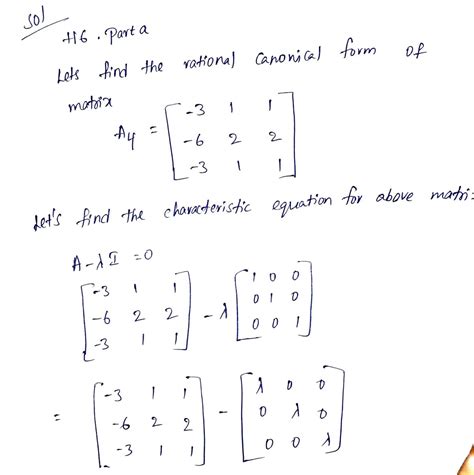 Sol
H6. Part a
Lets find the rational canonical form of
matrix
A4 = [ -3 1 1
-6 2 2
-3 1 1 ]
Let's find the characteristic equation for above matri:
A - λI = 0
[ -3 1 1
-6 2 2
-3 1 1 ] - λ [ 1 0 0
0 1 0
0 0 1 ]
= [ -3 1 1
-6 2 2
-3 1 1 ] - [ λ 0 0
0 λ 0
0 0 λ ]